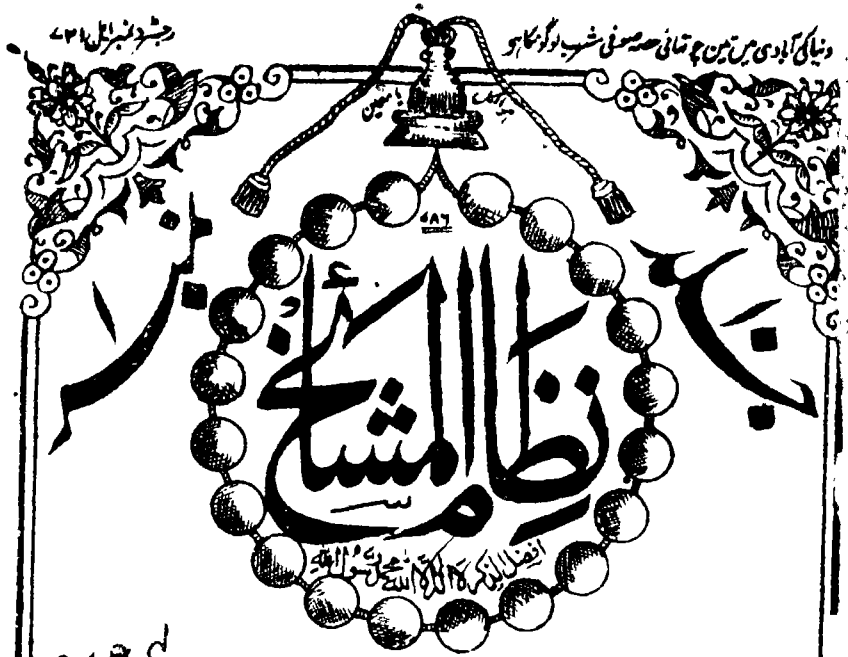 دنیا کی آبادی میں تین چوتھائی حصہ صوفی مشرب لوگونکا ہو
رجسٹرڈ نمبر ایل ۷۳۱
۷۸۶
جلد ۱
نمبر ۱
نظام المشائخ
افضل الذکر لا الہ الا اللہ محمد رسول اللہ